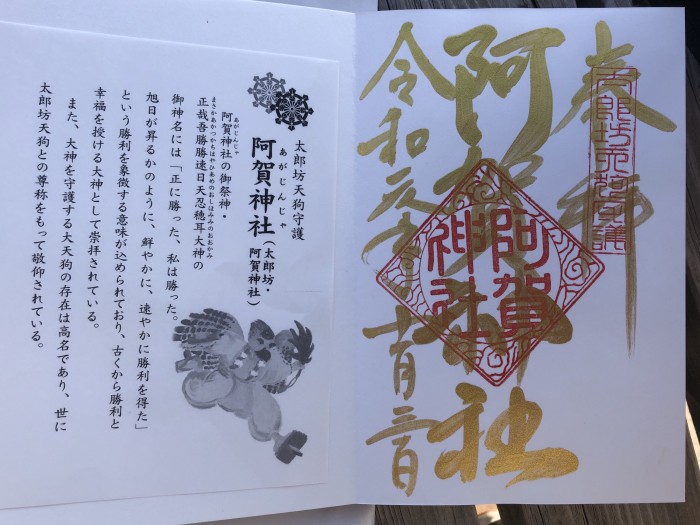 奉拝
太郎坊天狗守護
阿賀神社
阿賀神社
令和元年
月三日
太郎坊天狗守護
あがじんじゃ
阿賀神社(太郎坊・阿賀神社)
あがじんじゃ
阿賀神社の御祭神・
まさかあかつかちはやひあめのおしほみみのおおかみ
正哉吾勝勝速日天忍穂耳大神の
御神名には「正に勝った、私は勝った。
旭日が昇るかのように、鮮やかに、速やかに勝利を得た」
という勝利を象徴する意味が込められており、古くから勝利と
幸福を授ける大神として崇拝されている。
また、大神を守護する大天狗の存在は高名であり、世に
太郎坊天狗との尊称をもって敬仰されている。